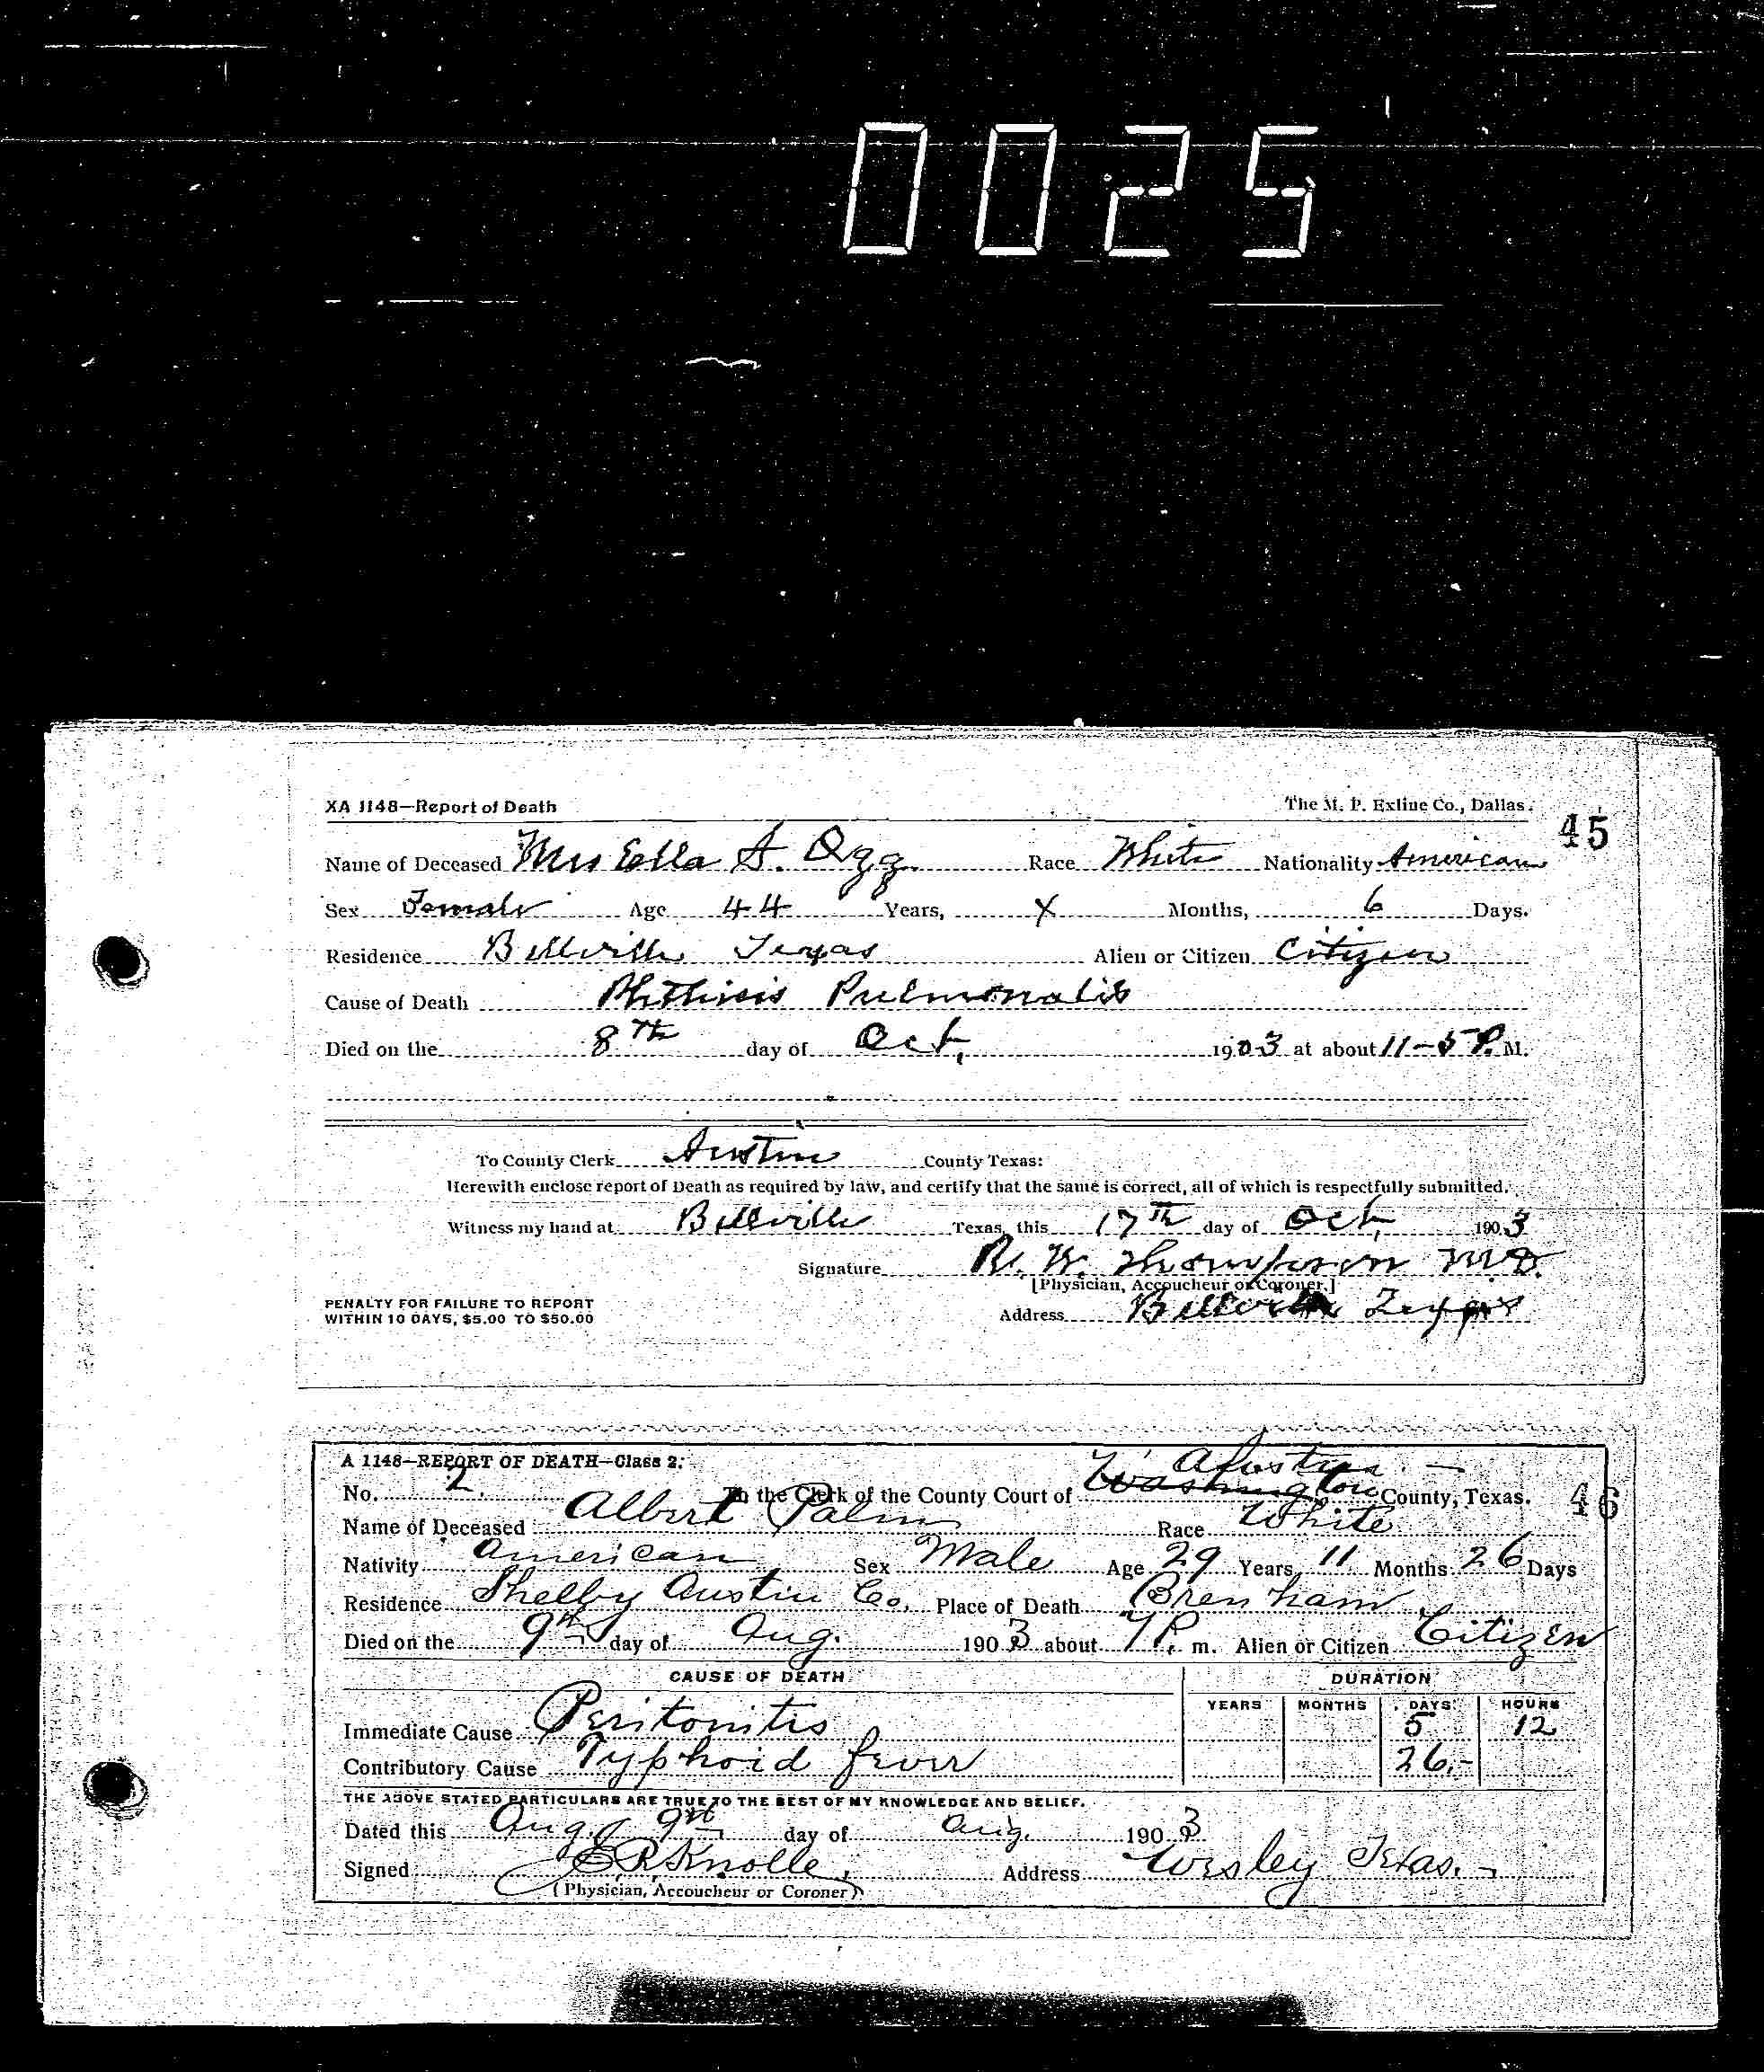 0025
XA 1148—Report of Death The M. P. Exline Co., Dallas.
45
Name of Deceased Mrs Ella S. Ogg Race White Nationality American
Sex Female Age 44 Years, X Months, 6 Days.
Residence Bellville Texas Alien or Citizen Citizen
Cause of Death Phthisis Pulmonalis
Died on the 8th day of Oct, 1903 at about 11-5 P. M.
To County Clerk Austin County Texas:
Herewith enclose report of Death as required by law, and certify that the same is correct, all of which is respectfully submitted.
Witness my hand at Bellville Texas, this 17th day of Oct, 1903
Signature R. W. Thompson M.D.
[Physician, Accoucheur or Coroner.]
PENALTY FOR FAILURE TO REPORT
WITHIN 10 DAYS, $5.00 TO $50.00
Address Bellville Texas
A 1148—REPORT OF DEATH—Class 2. Austin
No. 2. To the Clerk of the County Court of Washington County, Texas.
46
Name of Deceased Albert Palm Race White
Nativity American Sex Male Age 29 Years 11 Months 26 Days
Residence Shelby Austin Co. Place of Death Brenham
Died on the 9th day of Aug. 1903 about 7 P. m. Alien or Citizen Citizen
CAUSE OF DEATH DURATION
YEARS MONTHS DAYS HOURS
Immediate Cause Peritonitis 5 12
Contributory Cause Typhoid fever 26.-
THE ABOVE STATED PARTICULARS ARE TRUE TO THE BEST OF MY KNOWLEDGE AND BELIEF.
Dated this Aug. 9th day of Aug. 1903
Signed E R Knolle, Address Wesley Texas.
(Physician, Accoucheur or Coroner)